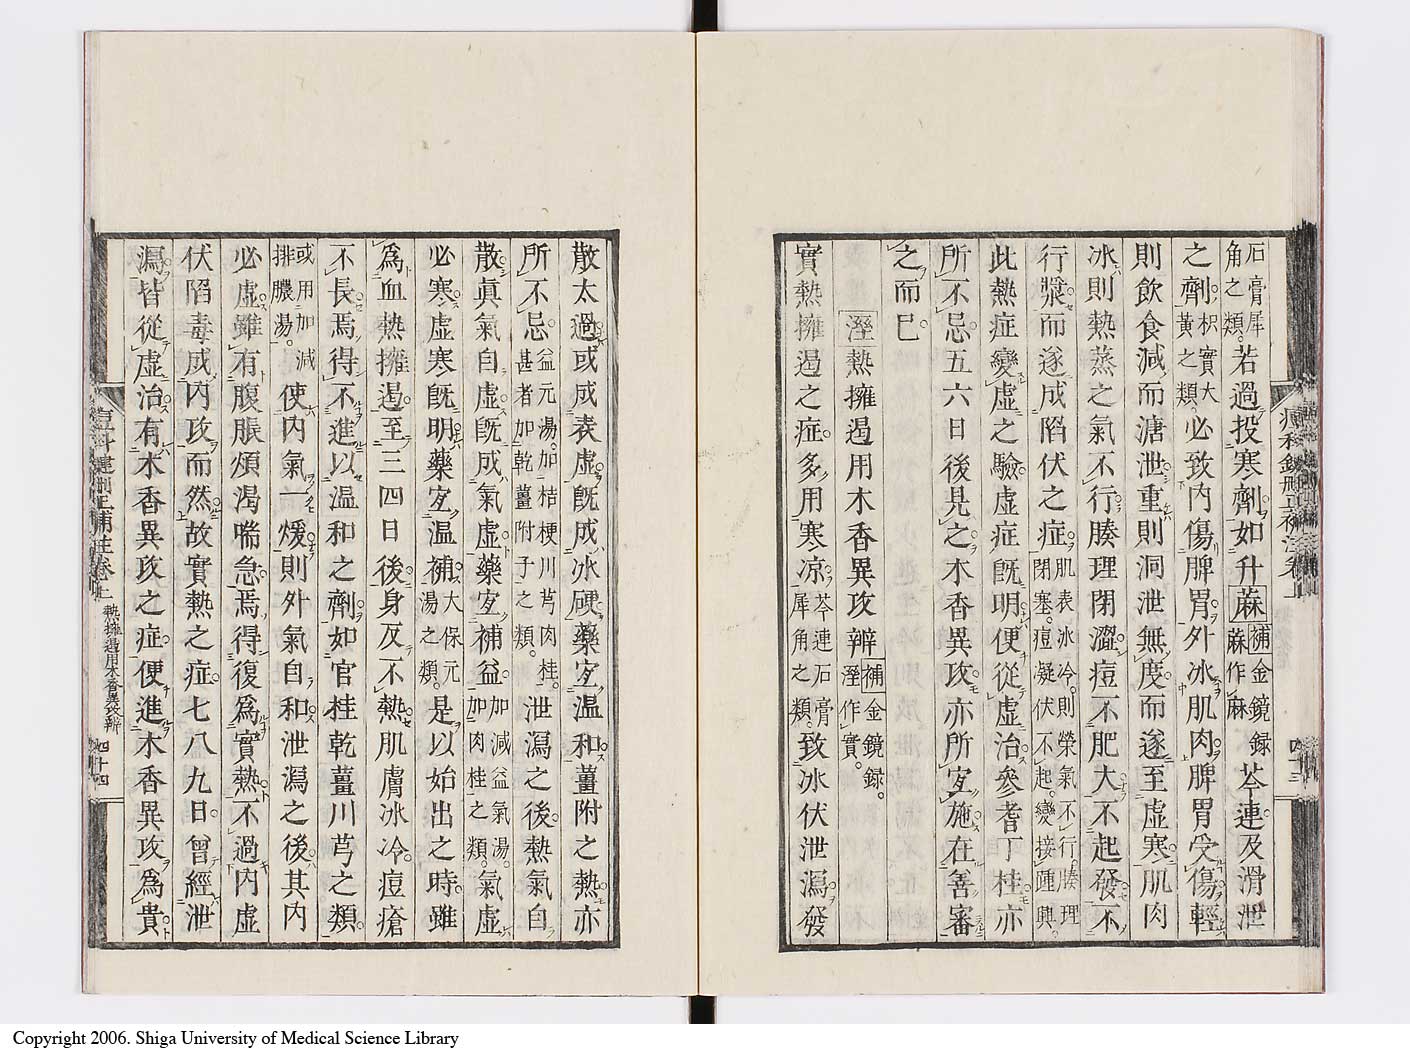 石膏犀角之類。若過投寒劑如升蔴補金鏡録蔴作麻芩連及滑泄
之劑枳實大黃之類。必致内傷脾胃外冰肌肉脾胃受傷輕
則飲食減而溏泄重則洞泄無度而遂至虚寒肌肉
冰則熱蒸之氣不行腠理閉澀痘不肥大不起發不
行漿而遂成陷伏之症肌表冰冷。則榮氣不行。腠理閉塞。痘凝伏不起。變接踵興。
此熱症變虚之驗虚症既明便從虚治參耆丁桂亦
所不忌五六日後見之木香異攻亦所宜施在善審
之而已
溼熱擁遏用木香異攻辨補金鏡録。溼作實。
實熱擁遏之症多用寒凉芩連石膏犀角之類。致冰伏泄瀉發
散太過或成表虚既成冰硬藥宜温和薑附之熱亦
所不忌益元湯。加桔梗川芎肉桂。甚者加乾薑附子之類。泄瀉之後熱氣自
散眞氣自虚既成氣虚藥宜補益加減益氣湯。加肉桂之類。氣虚
必寒虚寒既明藥宜温補大保元湯之類。是以始出之時雖
爲血熱擁遏至三四日後身反不熱肌膚冰冷痘瘡
不長焉得不進以温和之劑如官桂乾薑川芎之類
或用加減排膿湯。使内氣一煖則外氣自和泄瀉之後其内
必虚雖有腹脹煩渴喘急焉得復爲實熱不過内虚
伏陷毒成内攻而然故實熱之症七八九日曾經泄
瀉皆從虚治有木香異攻之症便進木香異攻爲貴
熱擁遏用木香異攻辨
四十四
四十三
Copyright 2006. Shiga University of Medical Science Library